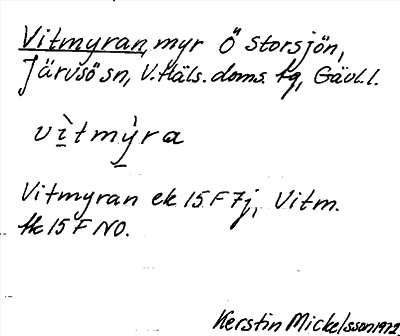 Vitmyran, myr Ö Storsjön,
Järvsö sn, V. Häls. doms. tg, Gävl. l.
vìtmỳra
Vitmyran ek 15 F 7j, Vitm.
tk 15 F NO.
Kerstin Mickelsson 1972